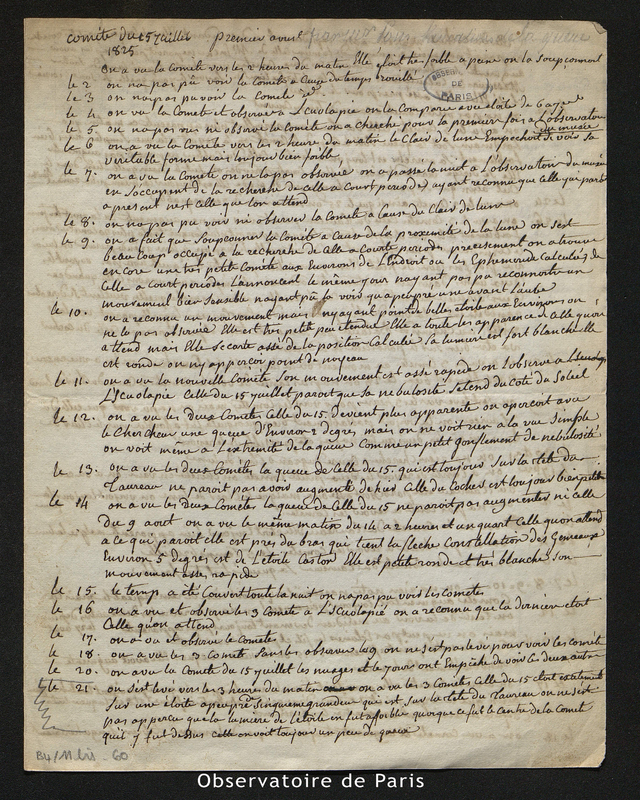 Cométe du 15 Juillet premier aout
1825
on a vu la Comete vers les 2 heures du matin Elle etoit tres foible a peine on la soupçonnoit
OBSERV
DE
PARIS
le 2 on na pas pû voir la Comete a Cause du temps brouillé
le 3 on na pas pu voir la Comete
le 4. on vu la Comete et observé a L'Esculapie on la Comparee avec etoile de 6 a 7e
le 5. on na pas vu ni observé la Comete on a cherché pour la premiere fois a L'observatoire
du musée
le 6 on a vu la Comete vers les 2 heure du matin le Clair de lune Empechoit de voir sa
veritable forme mais toujour bien foible
le 7. on a vu la Comete on ne la pas observée on a passé la nuit a L'observatoir du musée
en s'occupent de la recherche de Celle a Court periode, ayant reconnu que Celle qui paroit
a present nest Celle que lon attend
le 8. on na pas pu voir ni observer la Comete a Cause du Clair de lune
le 9. on a fait que soupconner la Comète a Cause de la proximité de la lune on sest
beaucoup occupé a la recherche de Celle a Courte periodes precisement on a trouvé
encore une tres petite Comete aux Environs de L'endroit ou les Ephemeride calculés de
Celle a court periodes L'annoncent le même jour nayant pas pu reconnoitre un
mouvement bien sensible nayant pû la voir qu'a peu pré une avant l'aube
le 10. on a reconnu un mouvement mais ny ayant point de belles etoile aux Environs on
ne la pas observée Elle est trés petite peu etendue Elle a toute les apparence de Celle quon
attend mais Elle S'ecarte assé de la position Calculée Sa lumiere est fort blanche elle
est ronde on ny appercoi point de noyeau
le 11. on a vu la nouvelle Comete Son mouvement est assé rapide on l'observe a
L'Esculapie Celle du 15 juillet paroit que Sa nebulosité Setend du Coté du Soleil
le 12. on a vu les deux Cometes Celle du 15. devient plus apparente on apercoit avec
le Chercheur une queue d'Environ 2 degrés mais on ne voit rien a la vue Simple
on voit même a L'extremité de la queue Comme un petit gonflement de nebulosité
le 13. on a vu les deux Cometes la queue de Celle du 15. qui est toujour Sur la tete du
Taureau ne paroit pas avoir augmenté de hier Celle du Cocher est toujour bien petite
le 14 on a vu les deux Cometes la queue de Celle du 15 ne paroit pas augmenter ni celle
du 9 aout on a vu le même matin du 14 a 2 heures et un quart Celle quon attend
a ce qui paroit elle est prés du bras qui tient la fleche Constellation des Gemeaux
Environ 5 degrés est de L'etoile Castor Elle est petite ronde et tres blanche son
mouvement assés rapide
le 15. le temp a été Couvert toute la nuit on na pas pu voir les Cometes
le 16 on a vu et observé les 3 Comete a L'Esculapié on a reconnu que la derniere etoit
Celle quon attend
le 17. on a vu et observé le Cometes
le 18. on a vu les 3 Comete Sans les observer le 19 on ne sest pas levé pour voir les cometes
le 20. on a vu la Comete du 15 juillet les nuages et le jours ont Empeché de voir les deux autre
le 21. on sest levé vers les 3 heures du matin on a vu les 3 Cometes Celle du 15 etoit exactement
Sur une etoile apeupré Sinquieme grandeur qui est sur la tete du Taureau on ne sest
pas appercu que la lumiere de L'etoile en fut affoiblie quoique ce fut le Centre de la Comete
qui y fut dessus Cette on voit toujour un peu de queue
B4/11 bis - 60
Observatoire de Paris